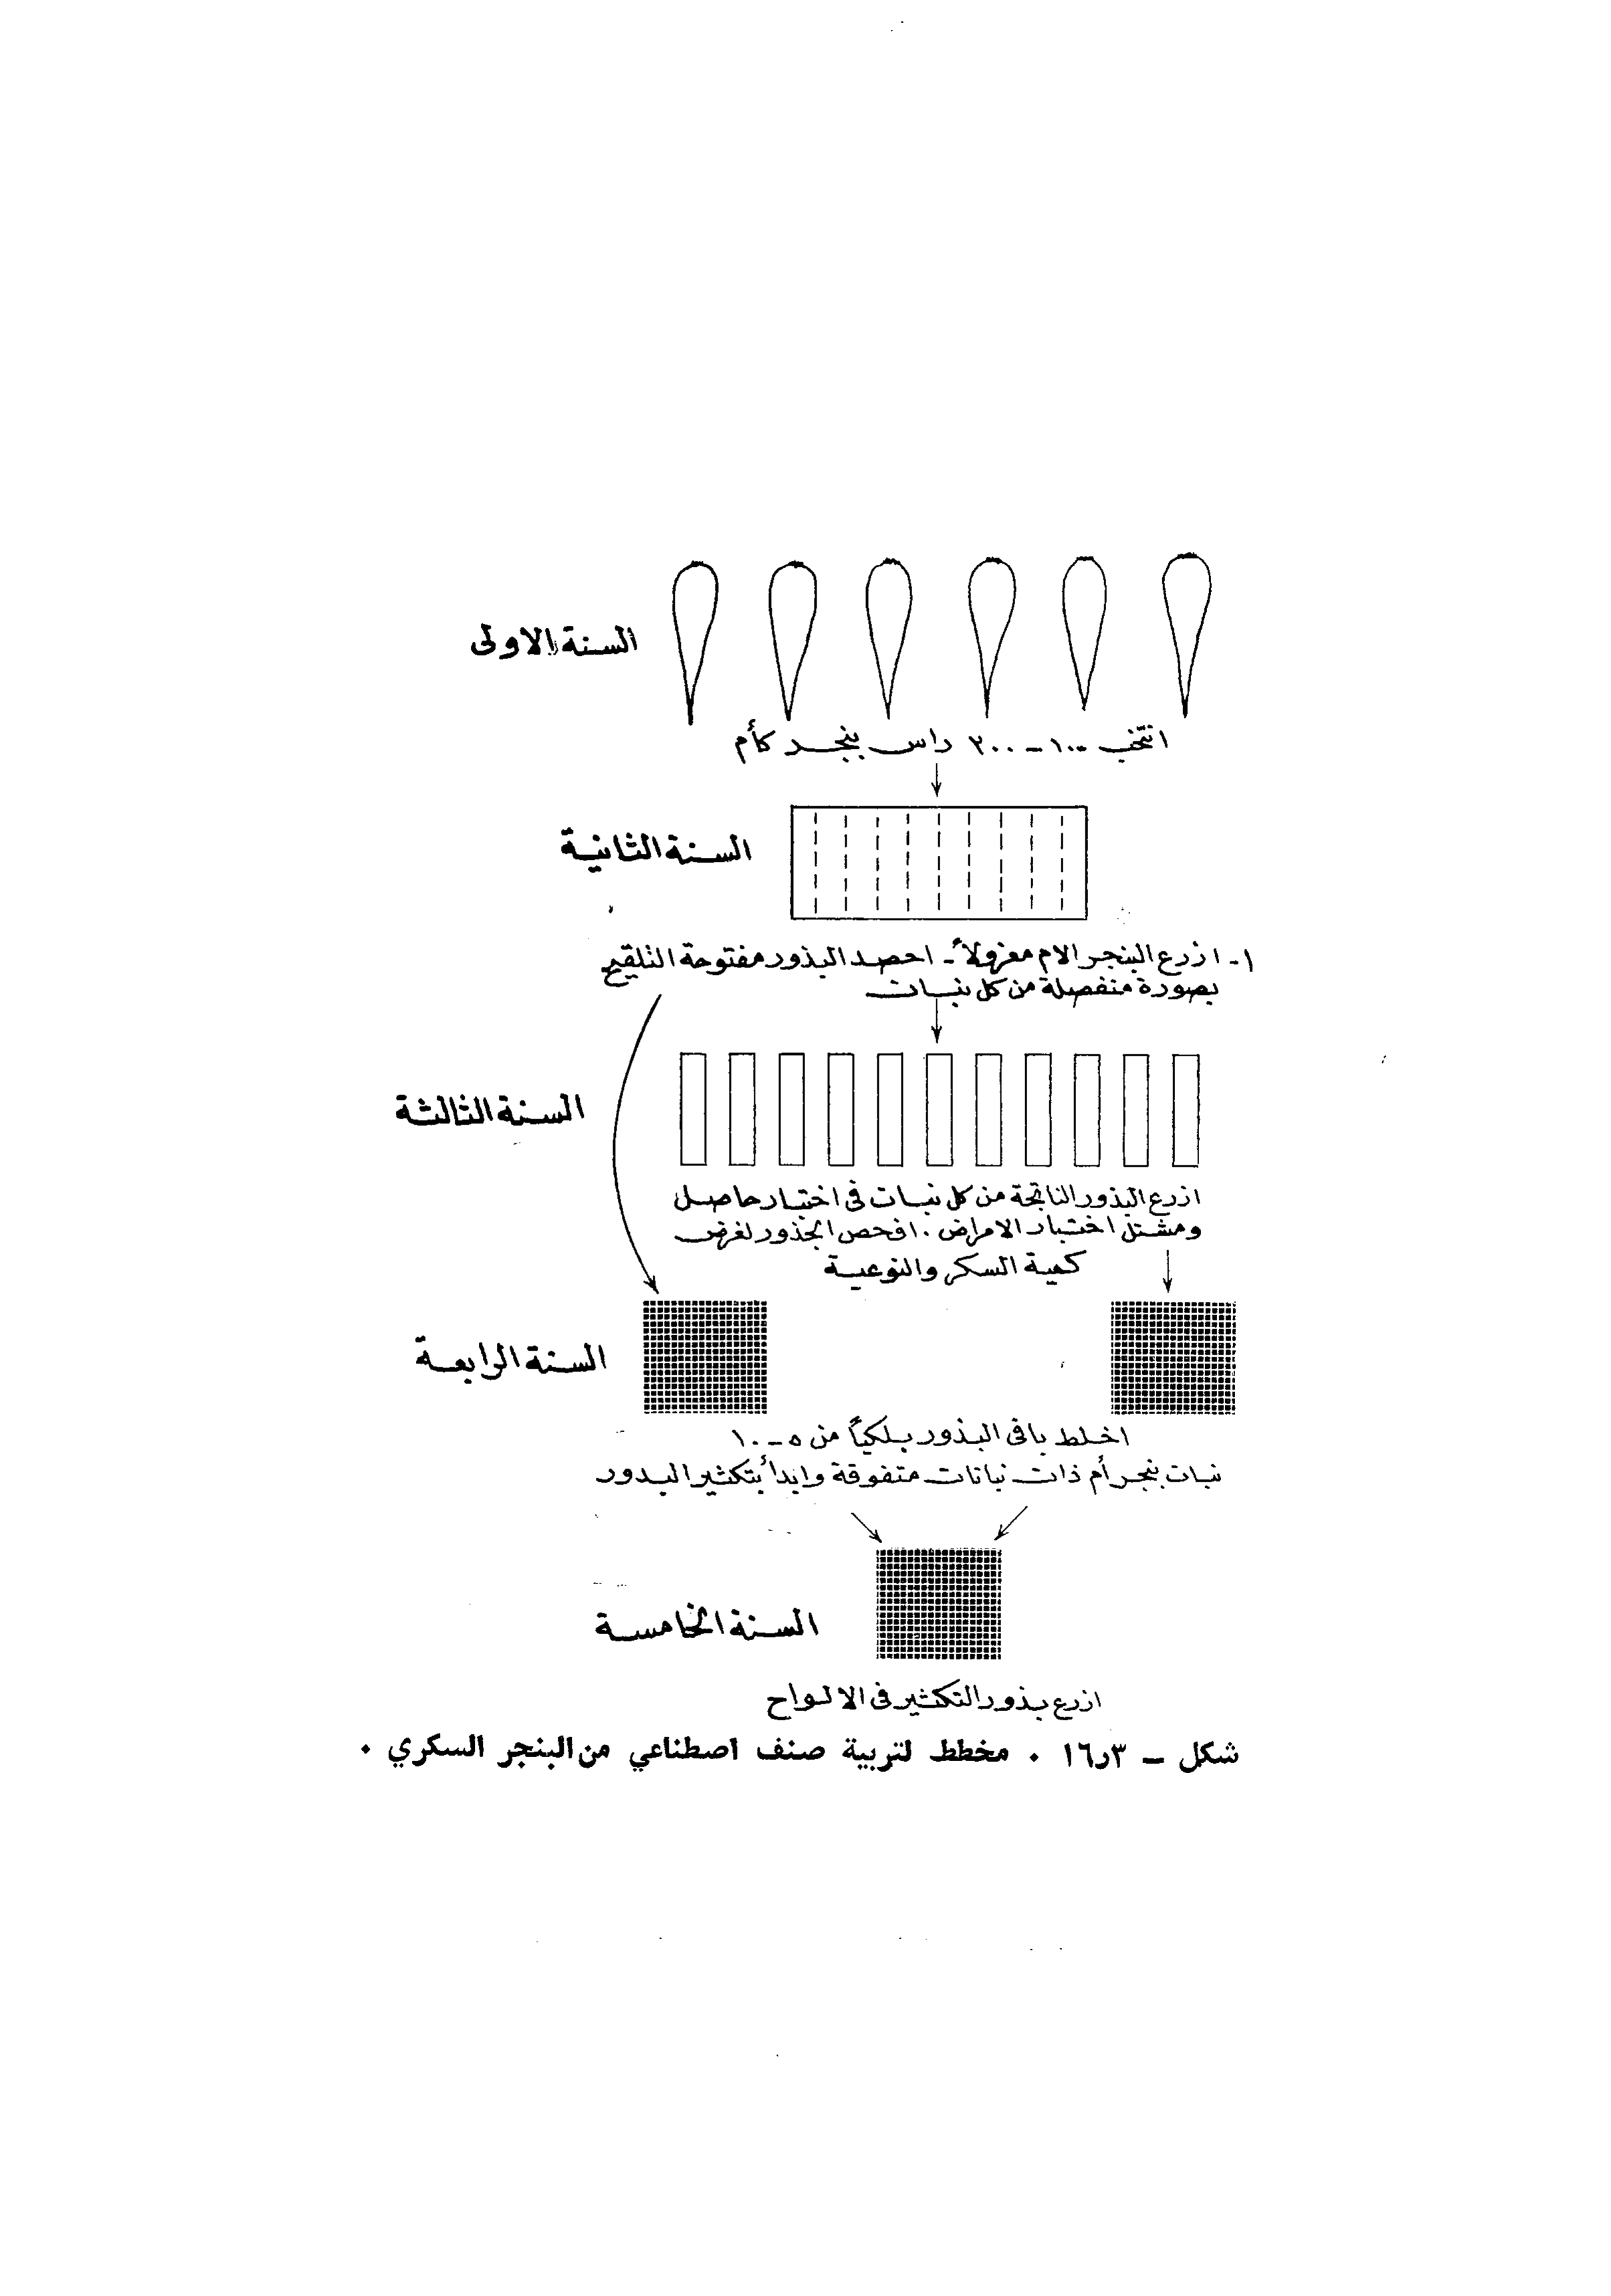 السنة الاولى
انتخب ١٠٠ - ٢٠٠ راس بنجر كأم
السنة الثانية
١- ازرع البنجر الام معزولاً - احصد البذور مفتوحة التلقيح
بصورة منفصلة من كل نبات
السنة الثالثة
ازرع البذور الناتجة من كل نبات في اختبار حاصل
ومشتل اختبار الامراض . افحص الجذور لغرض
كمية السكر والنوعية
السنة الرابعة
اخلط باقي البذور بلكياً من ٥ - ١٠
نبات بنجر أم ذات نباتات متفوقة وابدأ بتكثير البدور
السنة الخامسة
ازرع بذور التكثير في الالواح
شكل - ١٦ر٣ . مخطط لتربية صنف اصطناعي من البنجر السكري .